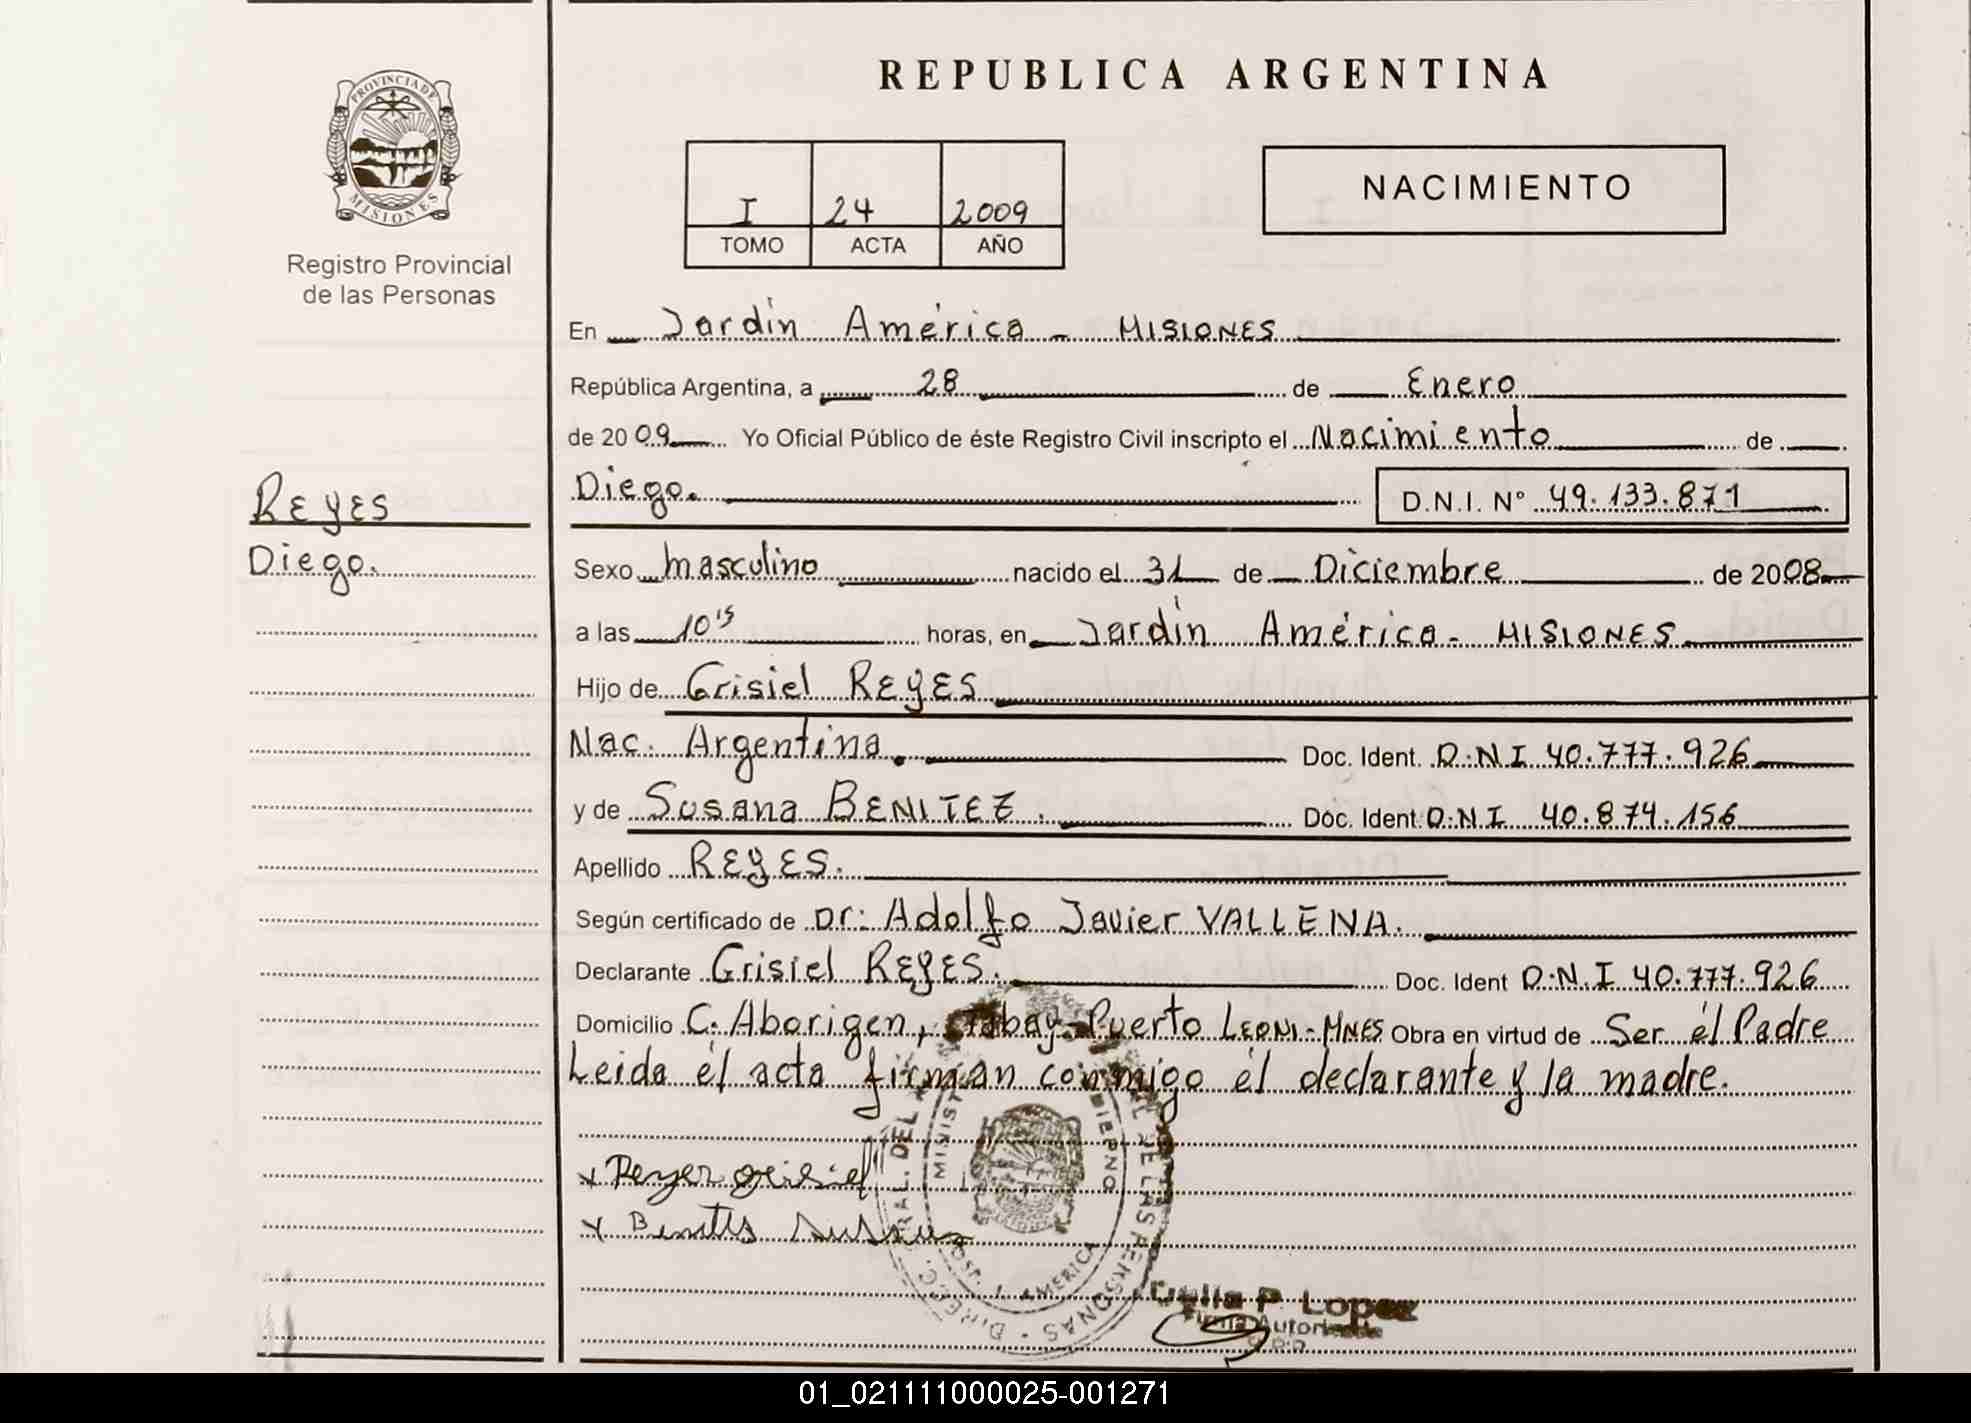 PROVINCIA DE
MISIONES
Registro Provincial
de las Personas
REPUBLICA ARGENTINA
I 24 2009
TOMO ACTA AÑO
NACIMIENTO
En Jardín América - MISIONES
República Argentina, a 28 de Enero
de 2009 Yo Oficial Público de éste Registro Civil inscripto el Nacimiento de
REYES
Diego. D.N.I. Nº 49.133.871
Diego.
Sexo masculino nacido el 31 de Diciembre de 2008
a las 10 15 horas, en Jardín América - MISIONES
Hijo de Grisiel REYES
Nac. Argentina. Doc. Ident. D.N.I 40.777.926
y de Susana BENITEZ. Doc. Ident. D.N.I 40.874.156
Apellido REYES.
Según certificado de Dr: Adolfo Javier VALLENA.
Declarante Grisiel REYES. Doc. Ident D.N.I 40.777.926
Domicilio C. Aborigen, Tabay - Puerto LEONI - MNES Obra en virtud de Ser él Padre
Leida él acta firman conmigo él declarante y la madre.
x Reyer grisiel
x Benites
DEL
AMERICA
DE LAS PERSONAS
Delia P. Lopez
Firma Autorizada
01_021111000025-001271